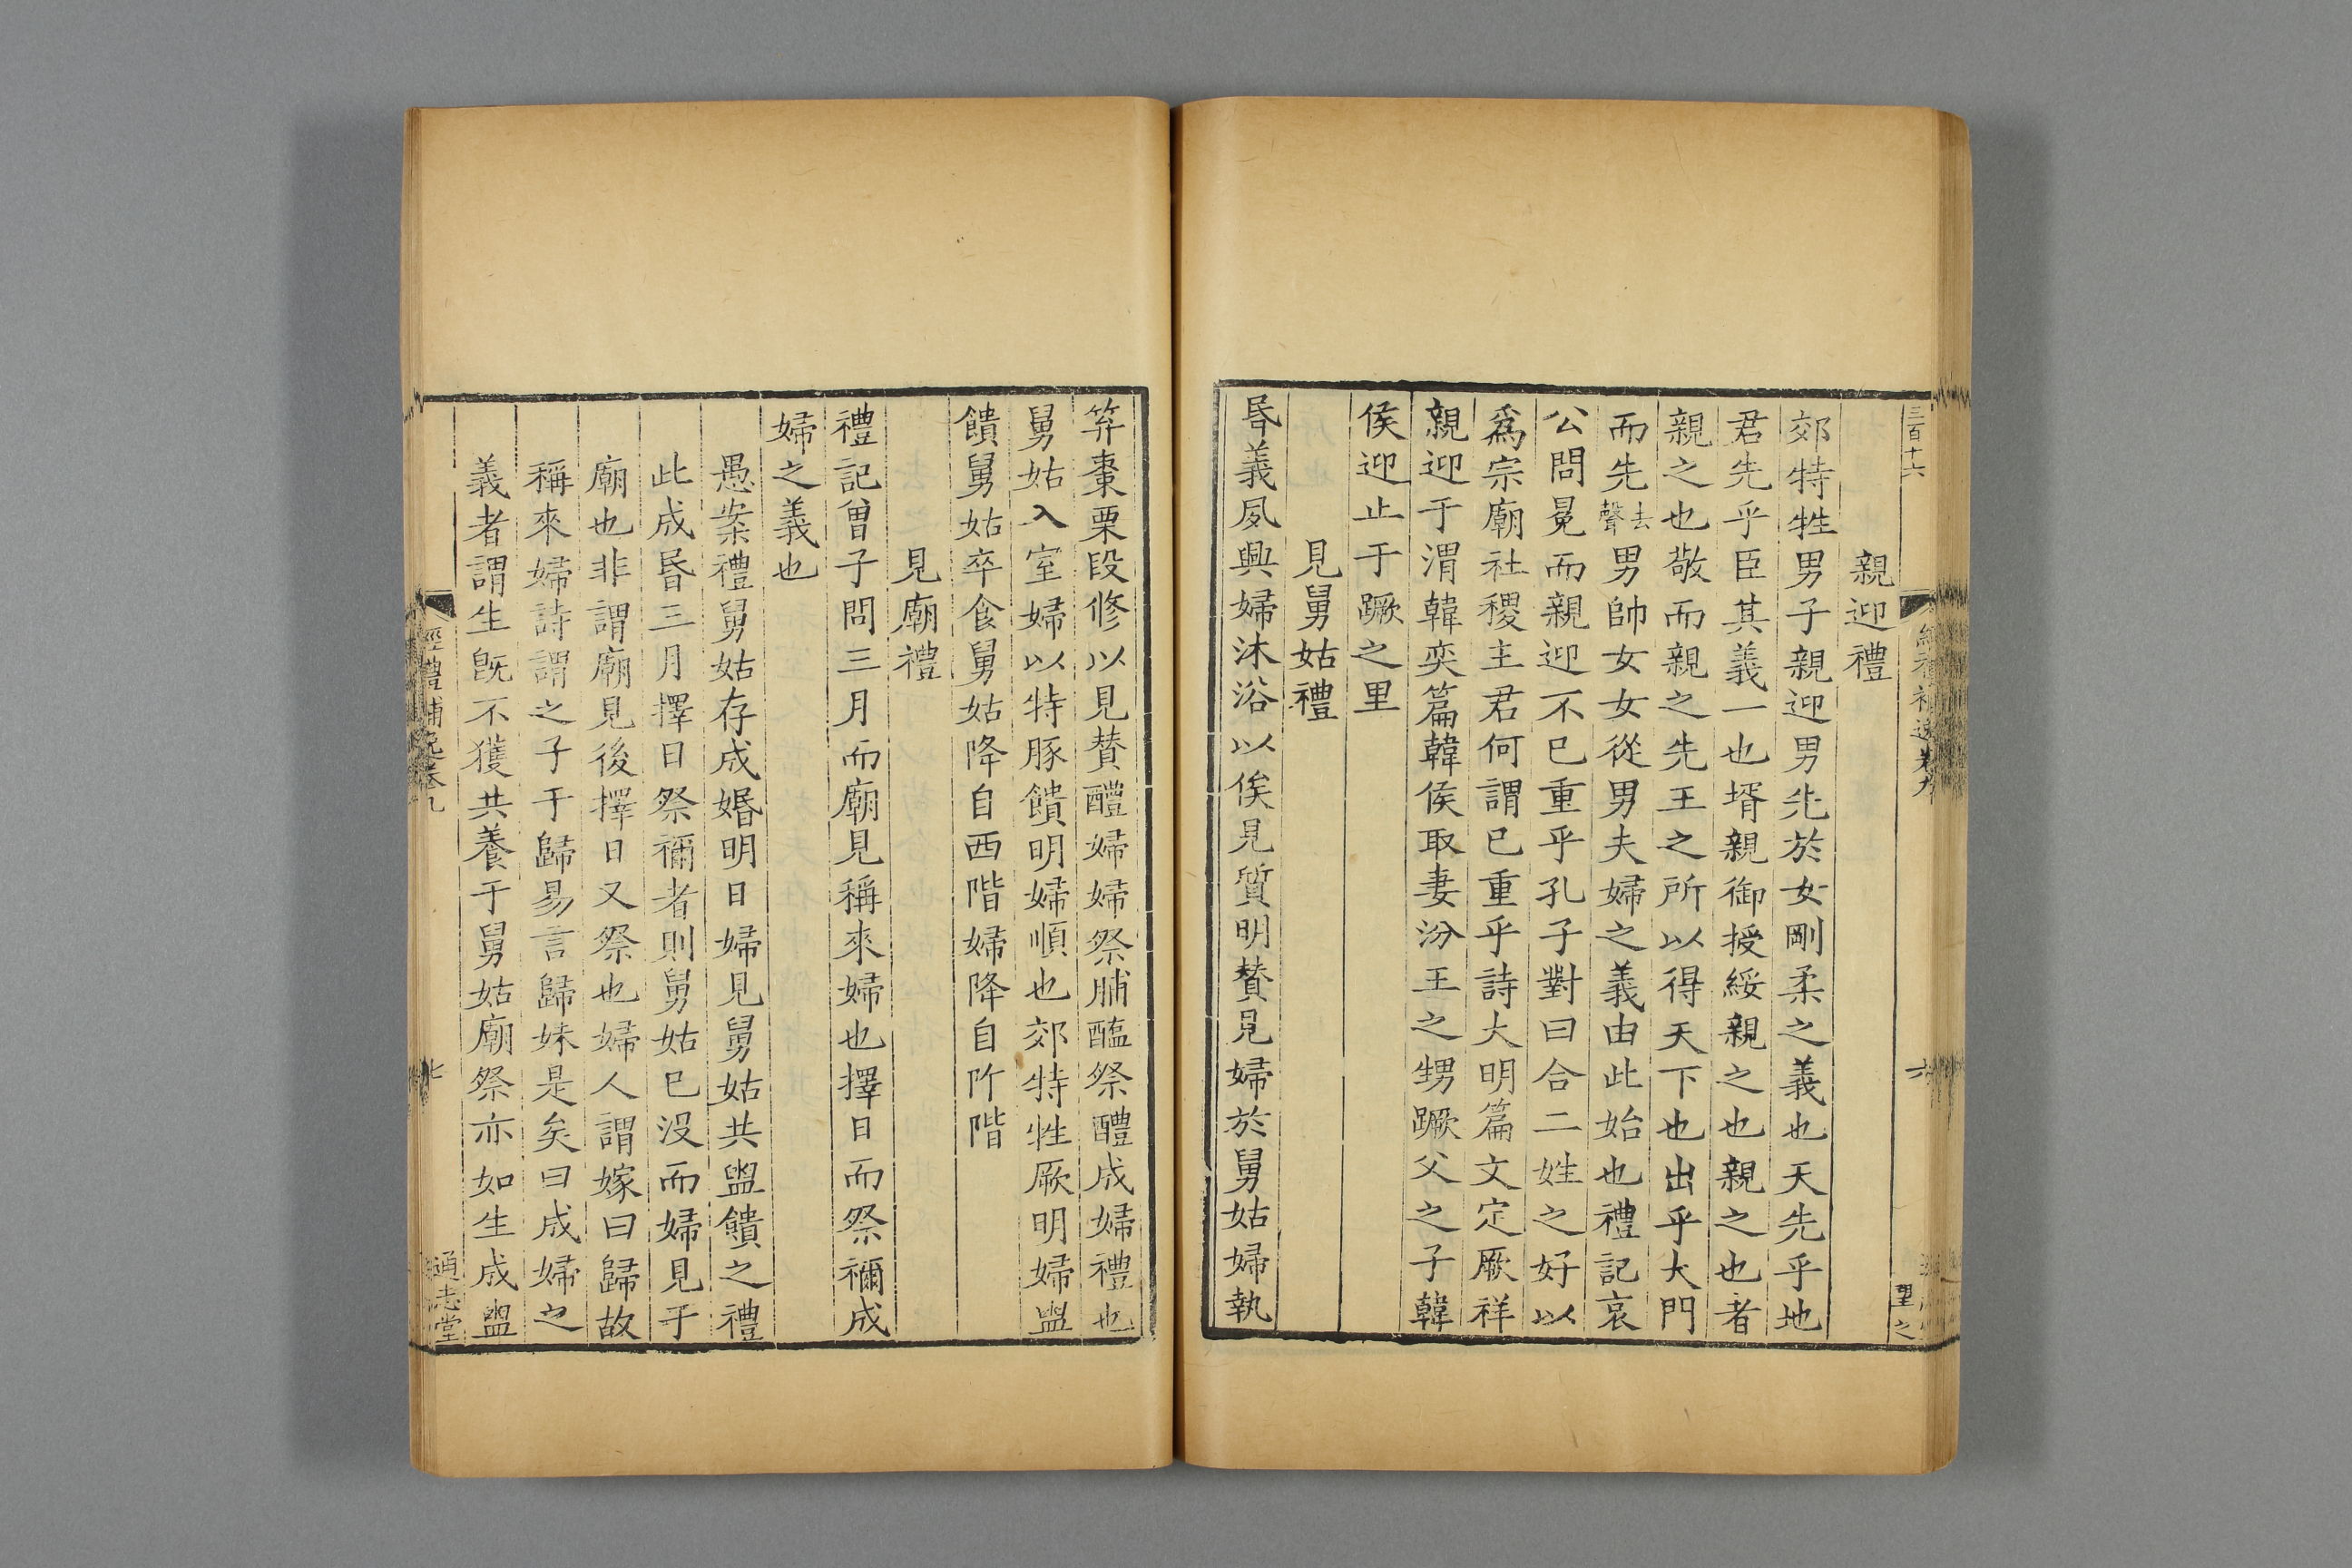 三百十六
親迎禮
郊特牲男子親迎男先於女剛柔之義也天先乎地
君先乎臣其義一也壻親御授綏親之也親之也者
親之也敬而親之先王之所以得天下也出乎大門
而先去聲男帥女女從男夫婦之義由此始也禮記哀
公問冕而親迎不已重乎孔子對曰合二姓之好以
爲宗廟社稷主君何謂已重乎詩大明篇文定厥祥
親迎于渭韓奕篇韓侯取妻汾王之甥蹶父之子韓
侯迎止于蹶之里
見舅姑禮
昏義夙興婦沐浴以俟見質明賛見婦於舅姑婦執
笲棗栗段修以見賛醴婦婦祭脯醢祭醴成婦禮也
舅姑入室婦以特豚饋明婦順也郊特牲厥明婦盥
饋舅姑卒食舅姑降自西階婦降自阼階
見廟禮
禮記曾子問三月而廟見稱來婦也擇日而祭禰成
婦之義也
愚案禮舅姑存成婚明日婦見舅姑共盥饋之禮
此成昏三月擇日祭禰者則舅姑已没而婦見于
廟也非謂廟見後擇日又祭也婦人謂嫁曰歸故
稱來婦詩謂之子于歸易言歸妹是矣曰成婦之
義者謂生旣不獲共養于舅姑廟祭亦如生成盥
經禮補逸卷九
七
通志堂